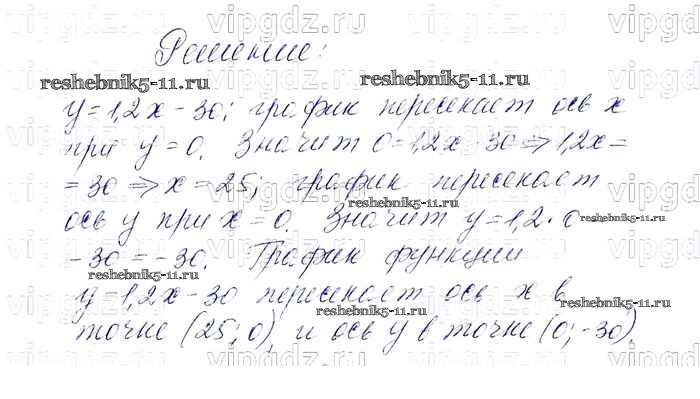 vipgdz.ru vipgdz.ru vipgdz.ru vipgdz.ru
Решение:
reshebnik5-11.ru reshebnik5-11.ru
y=1,2x-30; график пересекает ось x
при y=0. Значит 0=1,2x-30⇒1,2x=
=30⇒x=25; график пересекает
reshebnik5-11.ru
ось y при x=0. Значит y=1,2·0
reshebnik5-11.ru
-30=-30. График функции
reshebnik5-11.ru
y=1,2x-30 пересекает ось x в
reshebnik5-11.ru
reshebnik5-11.ru
точке (25;0), и ось y в точке (0;-30).
vipgdz.ru vipgdz.ru vipgdz.ru vipgdz.ru